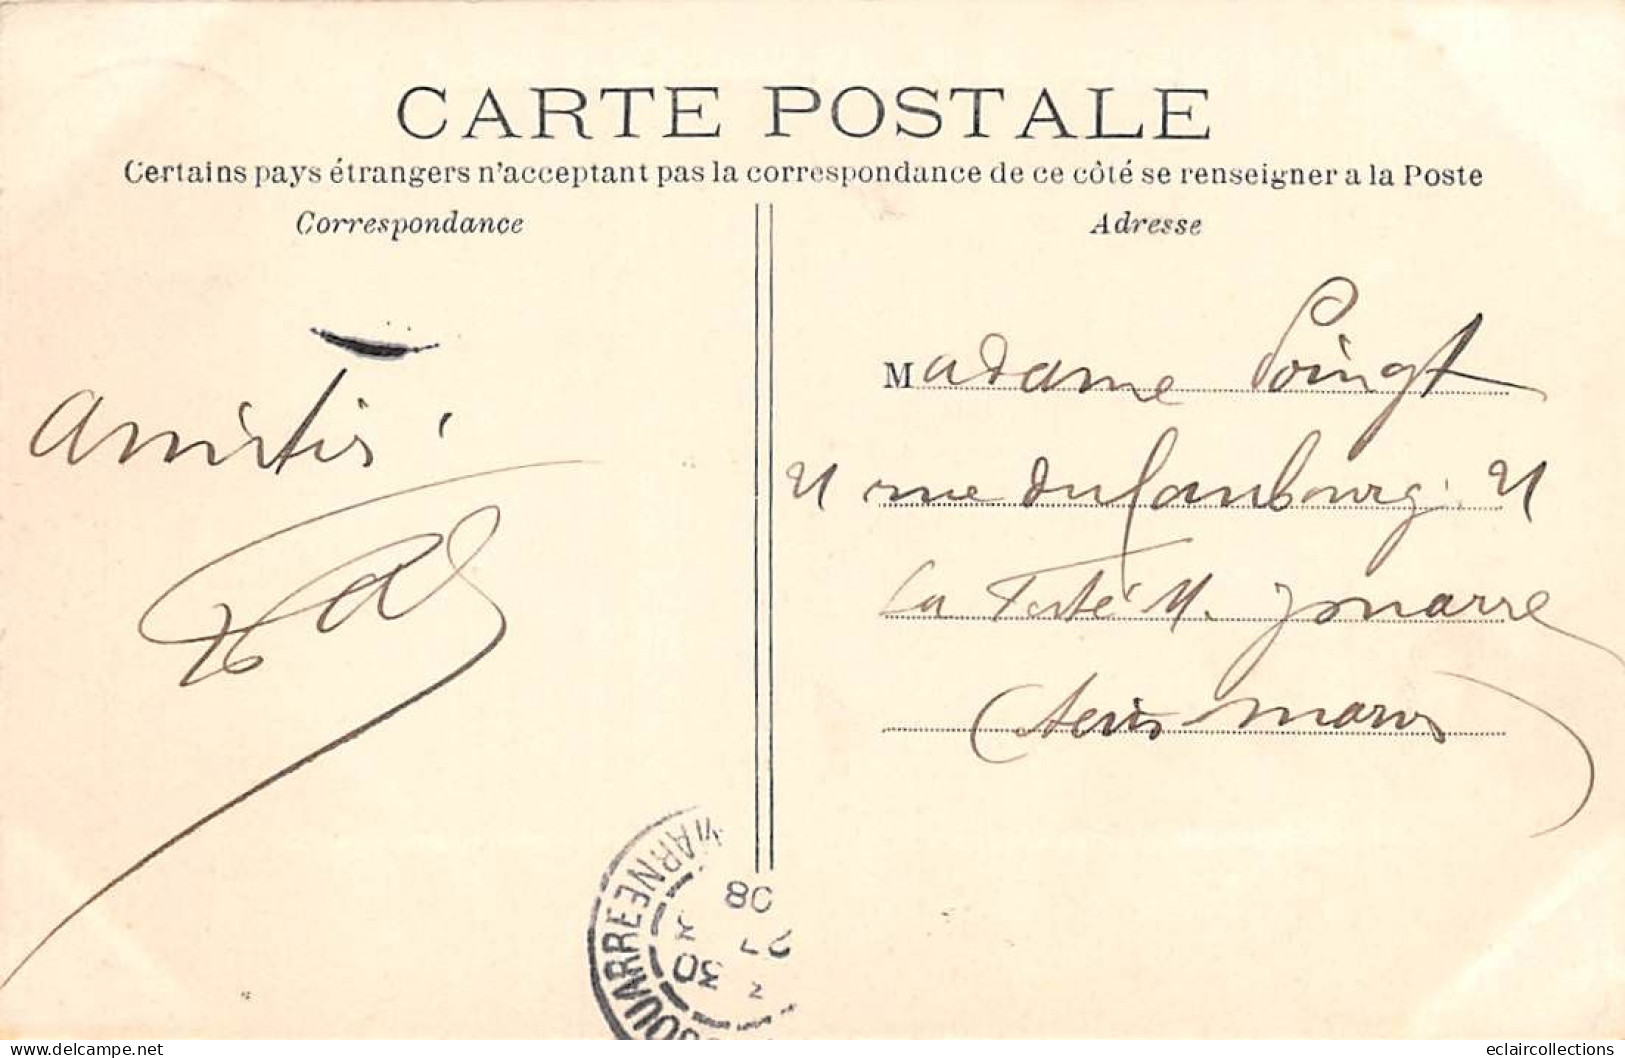 CARTE POSTALE
Certains pays étrangers n'acceptant pas la correspondance de ce côté se renseigner a la Poste
Correspondance
Adresse
Amitiés
Madame Poingt
21 rue du faubourg. 21
La Ferté M. Jouarre
(Seine marne)
JOUARRE
MARNE
08
30
delcampe.net
eclaircollections